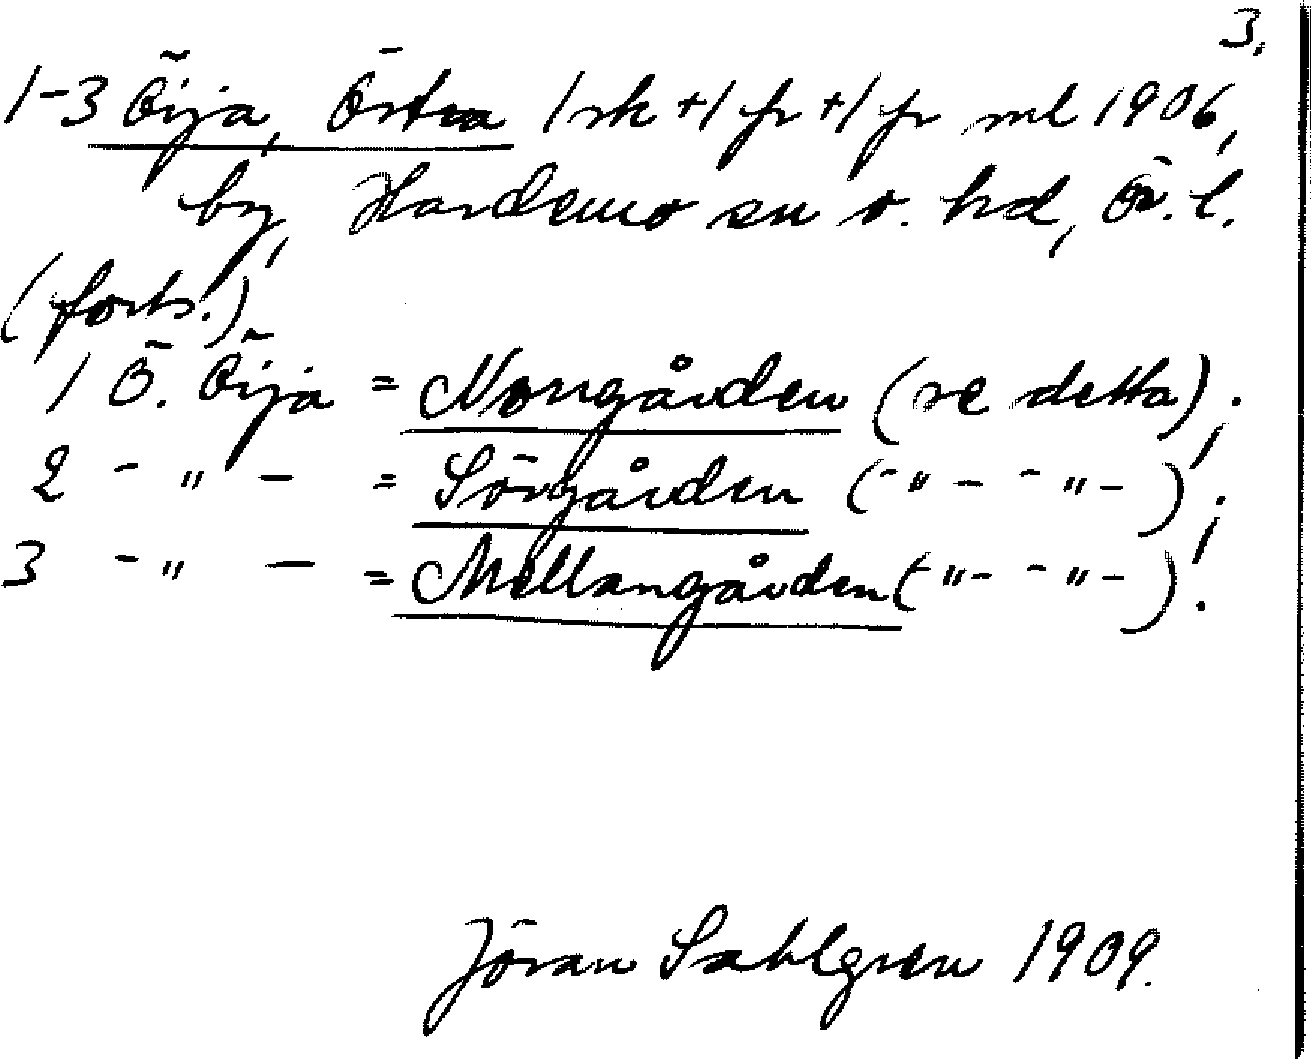 3.
1-3 Öija, Östra 1 sk + 1 fr + 1 fr ml 1906,
by, Hardemo sn o. hd, Ör. l.
(forts.)
1 Ö. Öija = Norrgården (se detta);
2 - " - = Sörgården (- " - - " -);
3 - " - = Mellangården (- " - - " -).
Jöran Sahlgren 1909.